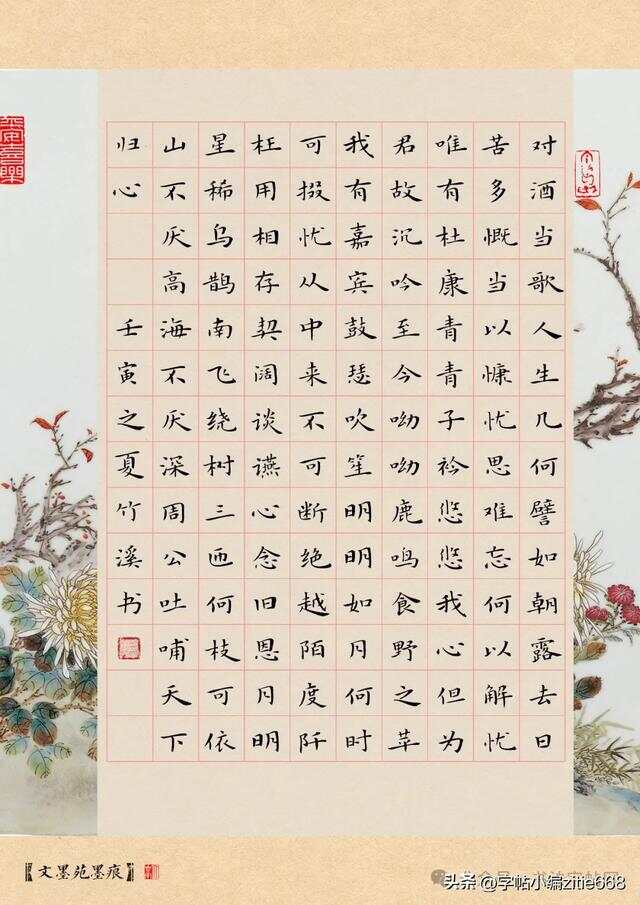 对酒当歌人生几何譬如朝露去日
苦多慨当以慷忧思难忘何以解忧
唯有杜康青青子衿悠悠我心但为
君故沉吟至今呦呦鹿鸣食野之苹
我有嘉宾鼓瑟吹笙明明如月何时
可掇忧从中来不可断绝越陌度阡
枉用相存契阔谈讌心念旧恩月明
星稀乌鹊南飞绕树三匝何枝可依
山不厌高海不厌深周公吐哺天下
归心 壬寅之夏竹溪书
【文墨苑墨痕】
头条 @字帖小编zitie668